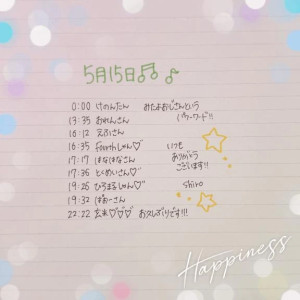 5月15日
0:00 けのんたん みたよおじさんという
パワーワード!!
13:35 おれんさん
16:12 えふさん
16:35 fourthしゅん♡ いつも
ありがとう
ございます!!
17:17 はなはなさん
17:36 とくめいさん♡
19:26 ひろまるしゅん♡ shiro
19:32 ばあーさん
22:22 玄米♡♡♡ お久しぶりです!!!
Happiness